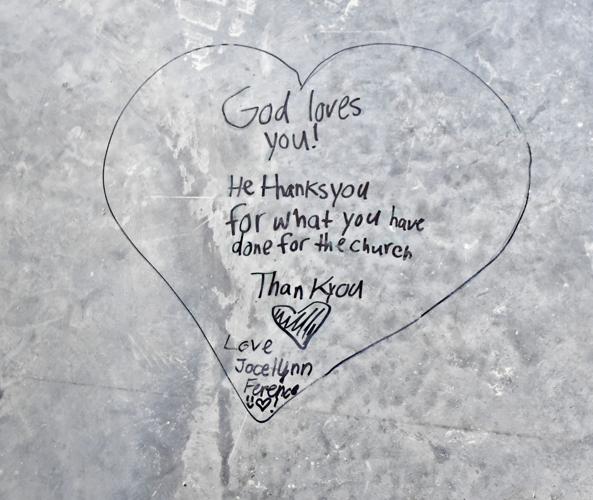 God loves
you!
He thanks you
for what you have
done for the church
Thank you
Love
Jocelynn
Ference